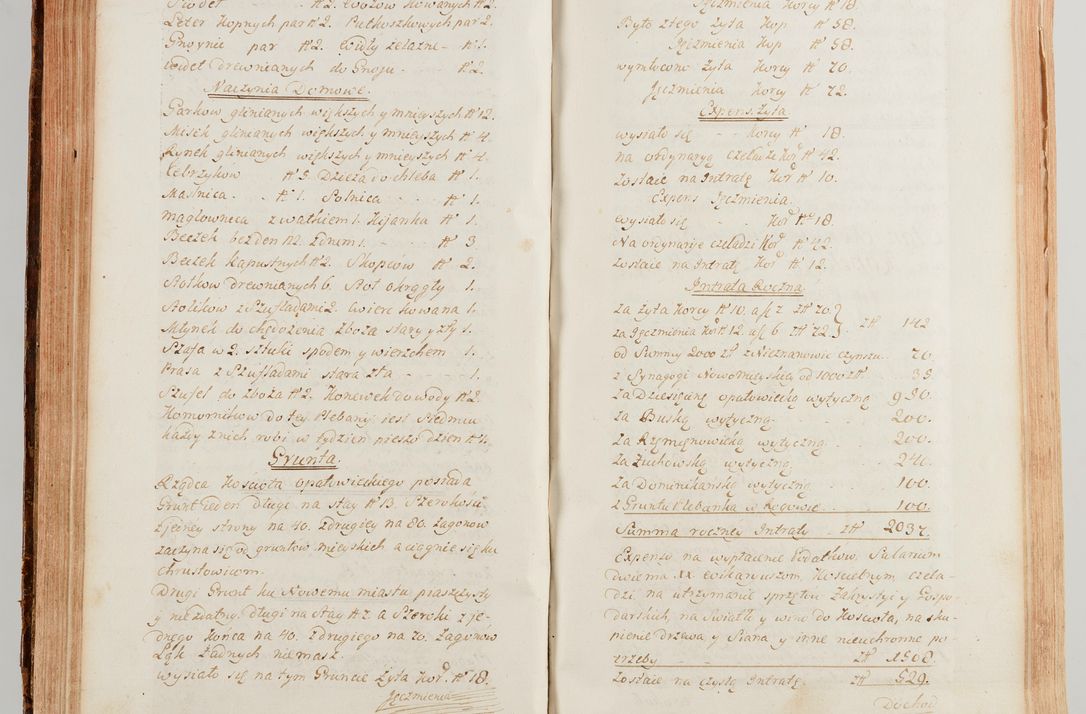 Leter Kopnych par № 2. Putkoszkowych par 2.
Gnoynic par № 2. Widły żelazne - № 1.
Wideł drewnianych do Gnoju - № 2.
Naczynia Domowe.
Garkow glinianych większych y mnieyszych № 12.
Misek glinianych większych y mnieyszych № 4.
Rynek glinianych większych y mnieyszych № 4.
Cebrzyków № 5. Dzieża do chleba № 1.
Maślnica № 1. Solnica № 1.
Maglownica z wałkiem 1. Kijanka № 1.
Beczek bez den № 2. z dnem 1. № 3
Beczek kapustnych № 2. Skopców № 2.
Stołkow drewnianych 6. Stoł okrągły 1.
Stolików z Szufladami 2. Cwierc kowana 1.
Młynek do chędożenia zboża stary y zły 1.
Szafa w 2. sztuki spodem y wierzchem 1.
Prasa z Szufladami stara zła - 1.
Szufel do zboża № 2. Konewek do wody № 2.
Komornikow do tey Plebanij iest Siedmiu
każdy z nich robi w tydzień pieszo dzien № 1.
Grunta.
Rządca Kościoła opatowieckiego posiada
Grunt ieden długi na Stay № 13. Szerokości
z jedney strony na 40. z drugiey na 80. Zagonow
zaczyna się od gruntów mieyskich a ciągnie się ku
Chrustowicom.
Drugi Grunt ku Nowemu miastu piaszczysty
y niezdatny długi na Stay № 2. a Szeroki z je-
dnego końca na 40. z drugiego na 20. Zagonów
Łąk Żadnych niemasz.
Wysiało się na tym Gruncie Żyta Kor. № 18.
Jęczmienia
Jęczmienia Korcy № 18.
Było złego Żyta Kop № 58.
Jęczmienia Kop № 58.
wymłócono Żyta Korcy № 70.
Jęczmienia Korcy № 72.
Expens Żyta
wysiało się - - Korcy № 18.
na ordynaryą czeladzi Kor. № 42.
Zostaie na Intratę Kor. № 10.
Expens Jęczmienia.
wysiał się Kor. № 18
Na ordynarye czeladzi Kor. № 42.
Zostaie na Intratę Kor. № 12.
Intrata Roczna
Za Żyta Korcy № 10. a fl 7. zł 70.
za Jęczmienia Kor. № 12. a fl 6. zł 72. } - zł 142
od Summy 2000 zł z Nieznanowic czynszu 70.
z Synagogi Nowomieyskiey od 1000 zł 35
Za Dziesięcinę opatowiecką wytyczną 950.
Za Buską wytyczną 200.
Za Rzemienowicką wytyczną 200.
Za Żuchowską wytyczną 240.
Za Dominikańską wytyczną 100.
z Gruntu Plebanka w Rogowie 100.
Summa roczney Intraty - zł 2037.
Expensu na wypłacenie Podatkow, Salarium
dwiema XX Wikaryuszom, Kościelnym, czela-
dzi na utrzymanie sprzętu Zakrystyi y Gospo-
darskich, na Swiatło y wino do Kosciola, na sku-
pienie drzewa y Siana y inne nieuchronne po-
trzeby - zł 1508.
Zostaie na czystą Intratę zł 529.
Dochod